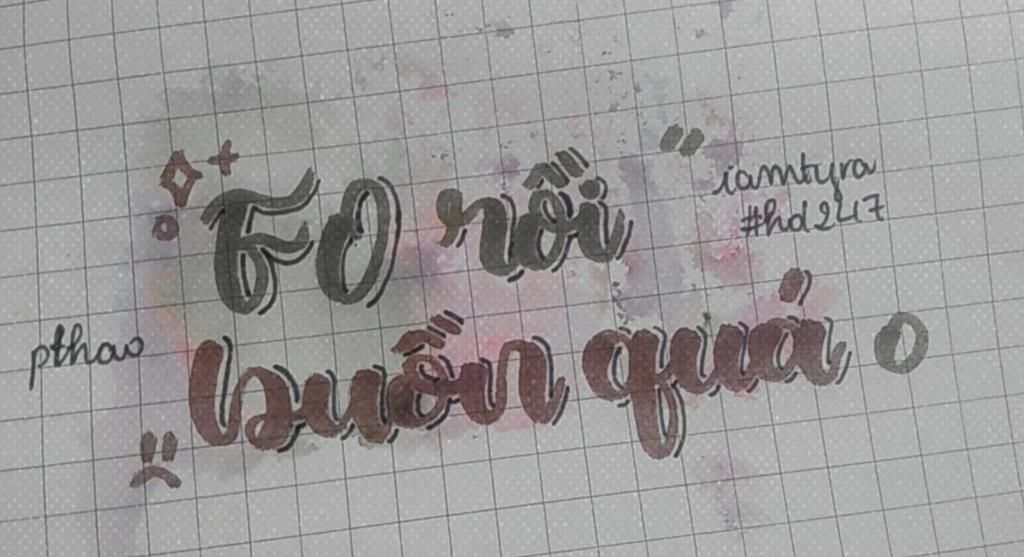 F0 rồi
iamtyra
#hd247
pthao
buồn quá